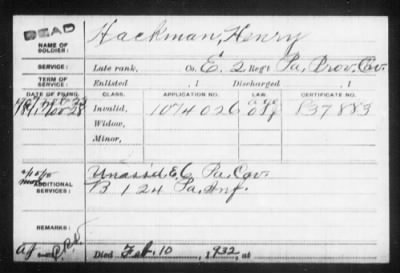 DEAD
NAME OF SOLDIER: Hackman, Henry
SERVICE: Late rank, Co. E, 2 Reg't Pa. Prov. Cav.
TERM OF SERVICE: Enlisted , 1 Discharged , 1
DATE OF FILING. CLASS. APPLICATION NO. LAW. CERTIFICATE NO.
Invalid, 1074026 837883
Widow,
Minor,
ADDITIONAL SERVICES: Unass'd E.C. Pa. Cav.
B 124 Pa. Inf.
REMARKS:
Died Feb. 10 , 1932, at